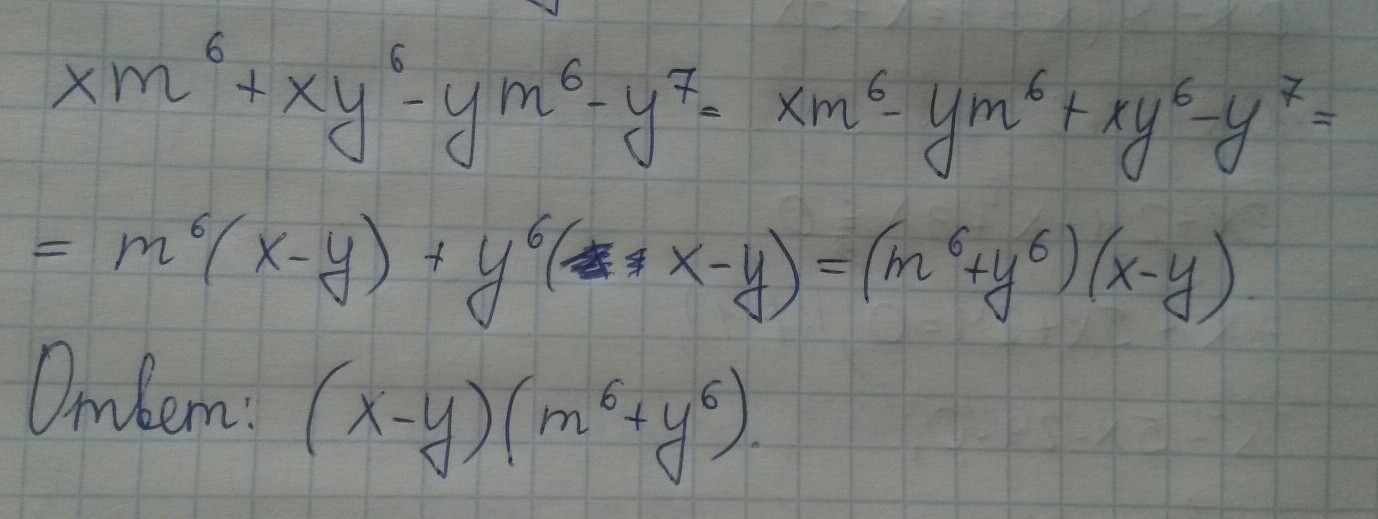 xm⁶ + xy⁶ - ym⁶ - y⁷ = xm⁶ - ym⁶ + xy⁶ - y⁷ =
= m⁶(x - y) + y⁶(x - y) = (m⁶ + y⁶)(x - y).
Ответ: (x - y)(m⁶ + y⁶).